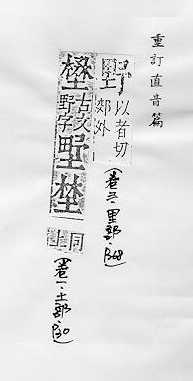 重訂直音篇
野以者切
郊外
(卷三·里部·P68)
壄古文
野字
埜同
上
(卷一·土部·P30)